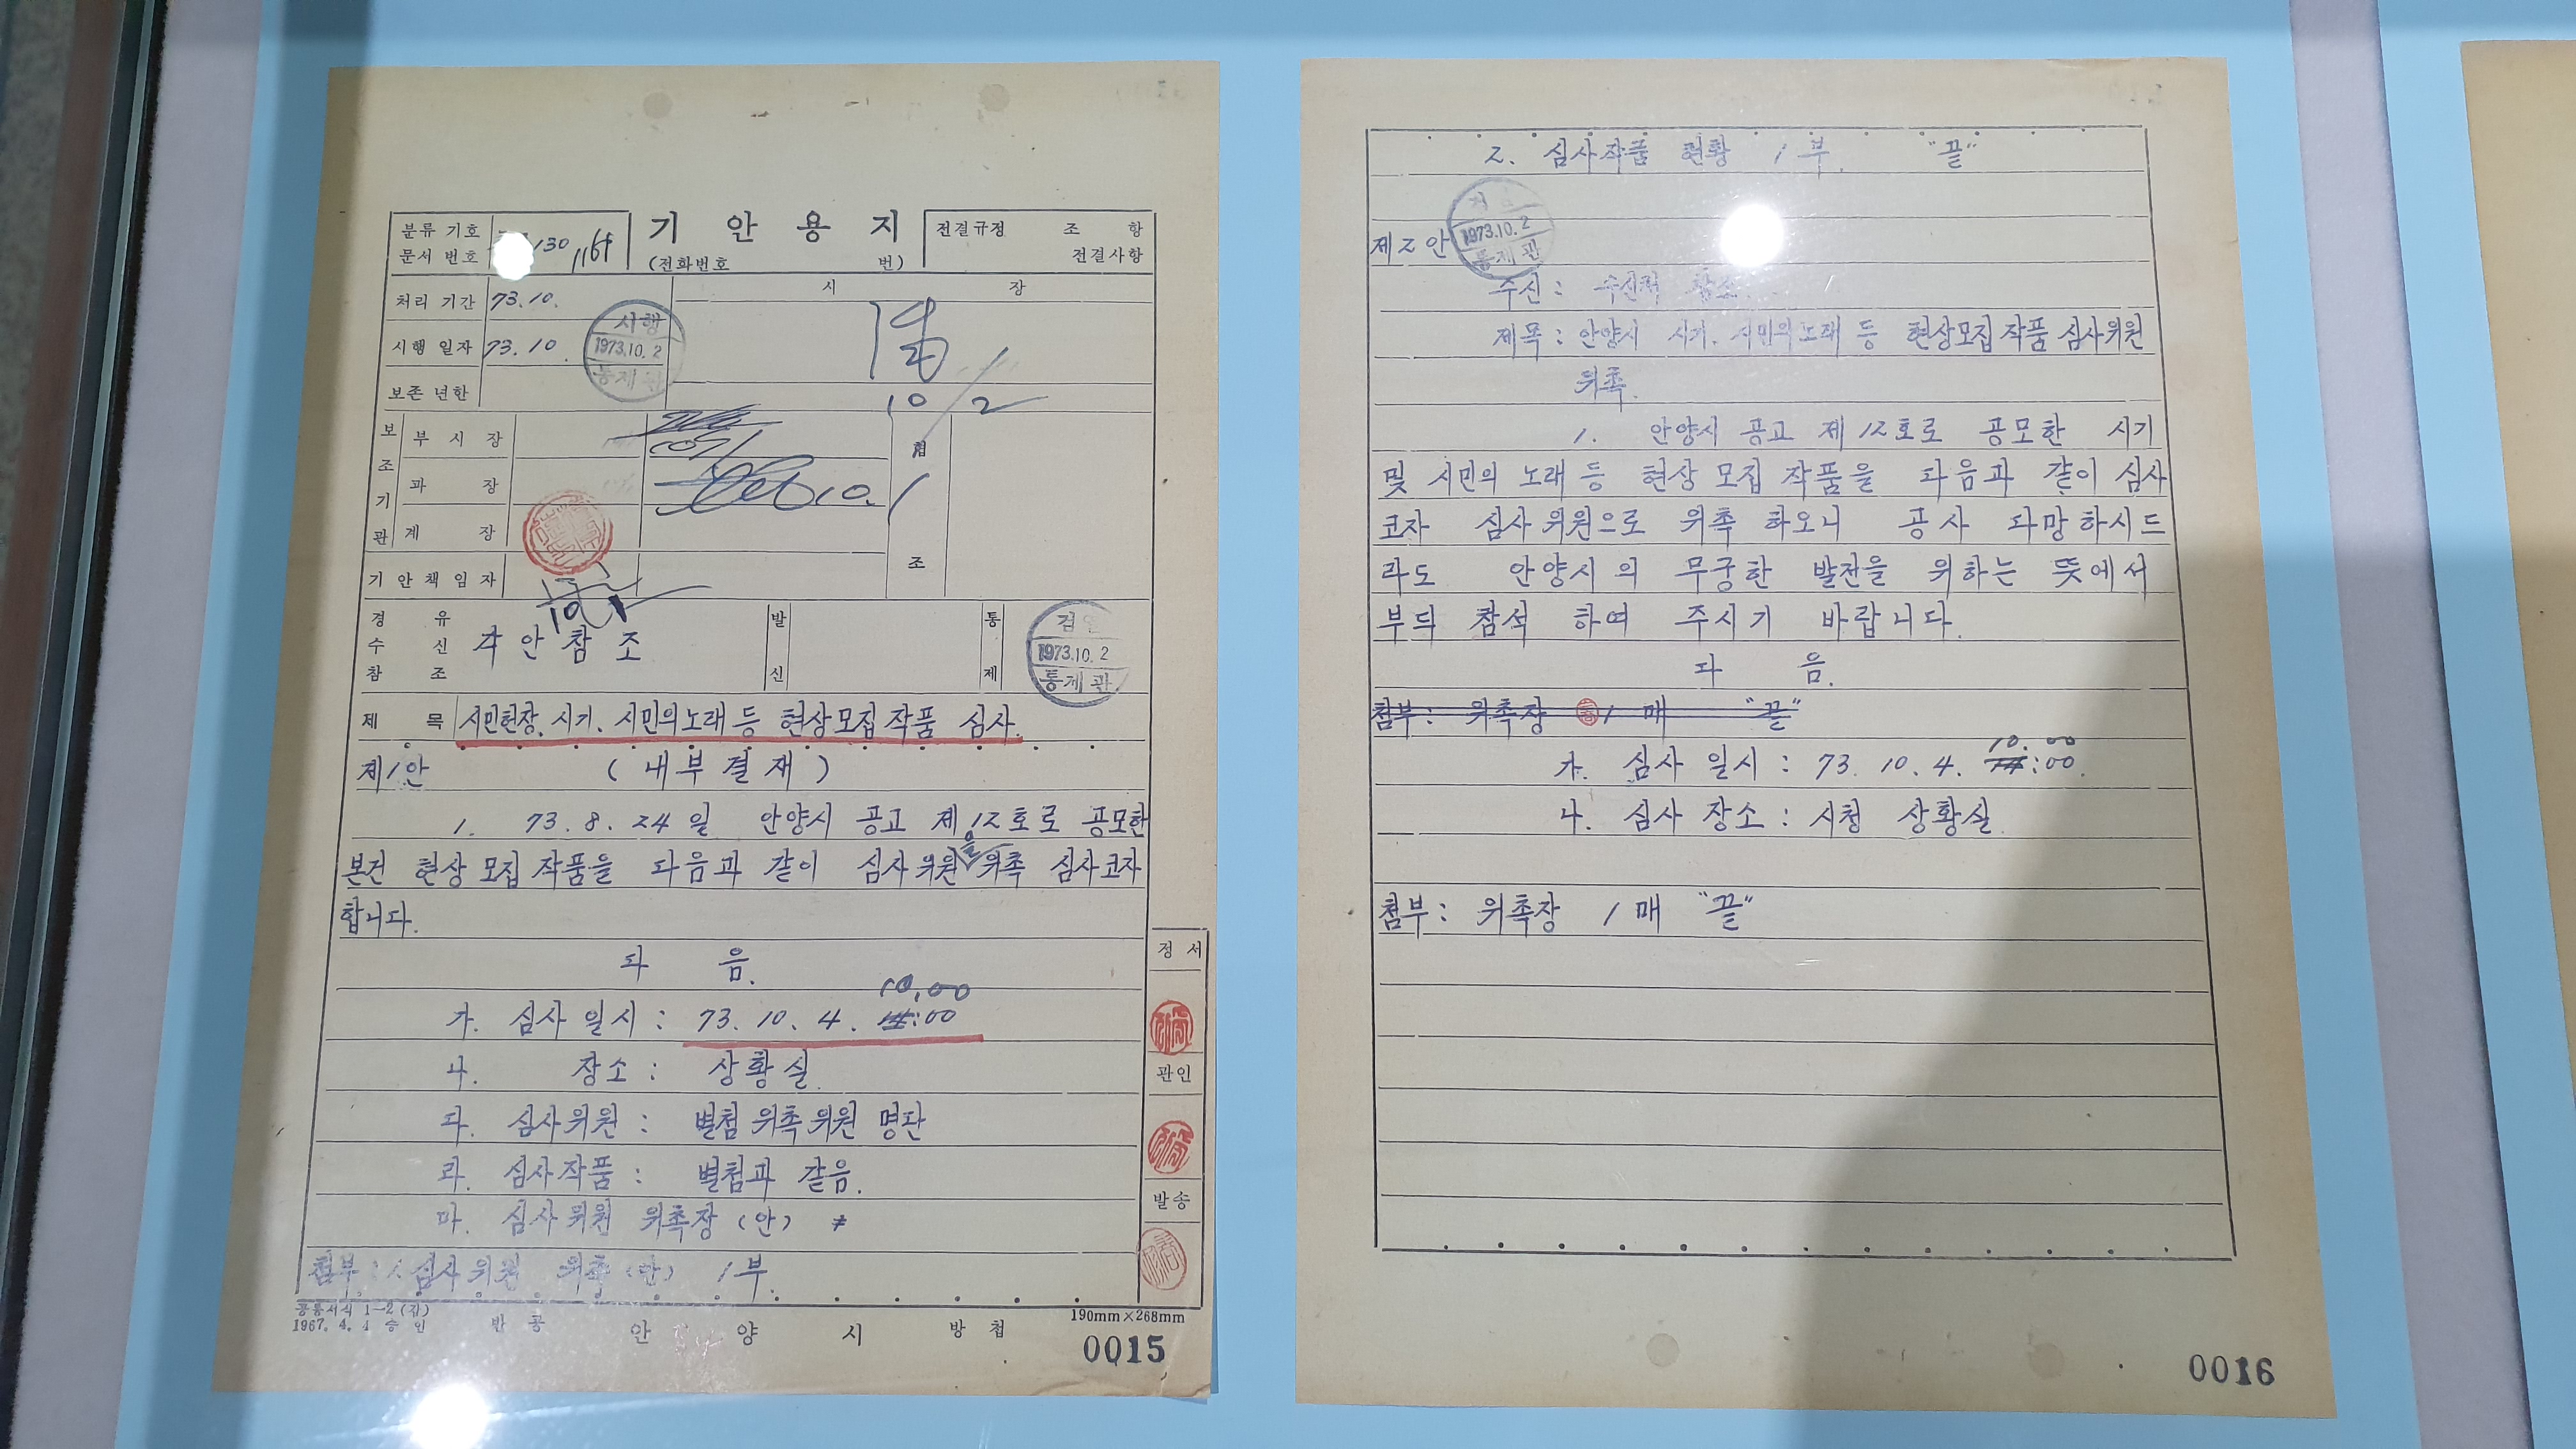 분류 기호
문서 번호
130
기 안 용 지
(전화번호 번)
전결규정 조 항
전결사항
처리 기간 73.10.
시 장
시행 일자 73.10.
시행
1973.10.2
통제관
보존 년한
10 / 2
보조기관
부 시 장
과 장
계 장
10.1
조
기안책임자
10.1
경 유
수 신
참 조
각 안 참 조
발 신
통 제
검인
1973.10.2
통제관
제 목 시민헌장. 시기. 시민의노래 등 현상모집 작품 심사.
제1안 (내부결재)
1. 73.8.24일 안양시 공고 제12호로 공모한
본건 현상모집 작품을 다음과 같이 심사위원을 위촉 심사코자
합니다.
다 음.
10,00
가. 심사 일시 : 73. 10. 4. 14:00
나. 장소 : 상황실.
다. 심사위원 : 별첨 위촉위원 명단
라. 심사작품 : 별첨과 같음.
마. 심사위원 위촉장(안) 〃
첨부 : 1. 심사위원 위촉(안) 1부.
정 서
관인
발송
공통서식 1-2 (갑)
1967. 4. 4 승 인
반 공
안 양 시
방 첩
190mm×268mm
0015
2. 심사작품 현황 1부. "끝"
제2안
1973.10.2
통제관
수신 : 수신처 참조.
제목 : 안양시 시기. 시민의노래 등 현상모집 작품 심사위원
위촉.
1. 안양시 공고 제12호로 공모한 시기
및 시민의 노래 등 현상모집 작품을 다음과 같이 심사
코자 심사위원으로 위촉 하오니 공사 다망하시드
라도 안양시의 무궁한 발전을 위하는 뜻에서
부듸 참석 하여 주시기 바랍니다.
다 음.
첨부 : 위촉장 1 매 "끝"
10.00
가. 심사 일시 : 73. 10. 4. 14:00.
나. 심사 장소 : 시청 상황실.
첨부 : 위촉장 1 매 "끝"
0016